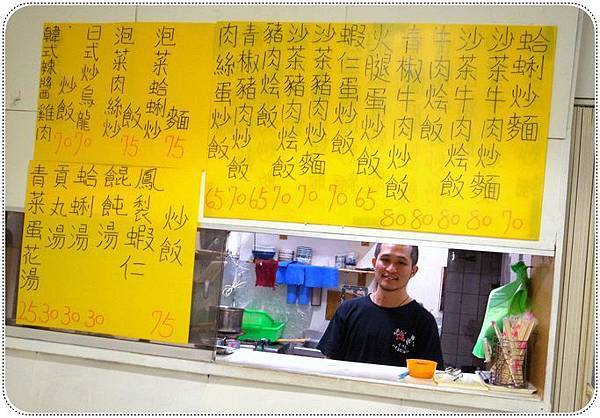 蛤蜊炒麵 70
沙茶牛肉炒麵 80
沙茶牛肉烩飯 80
牛肉烩飯 80
青椒牛肉炒飯 80
火腿蛋炒飯 65
蝦仁蛋炒飯 70
沙茶豬肉炒麵 70
沙茶豬肉烩飯 70
豬肉烩飯 65
青椒豬肉炒飯 70
肉絲蛋炒飯 65
泡菜蛤蜊炒麵 75
泡菜肉絲炒飯 75
日式炒烏龍 70
韓式辣醬雞肉炒飯 70
鳳製蝦仁炒飯 75
餛飩湯 30
蛤蜊湯 30
貢丸湯 30
青菜蛋花湯 25